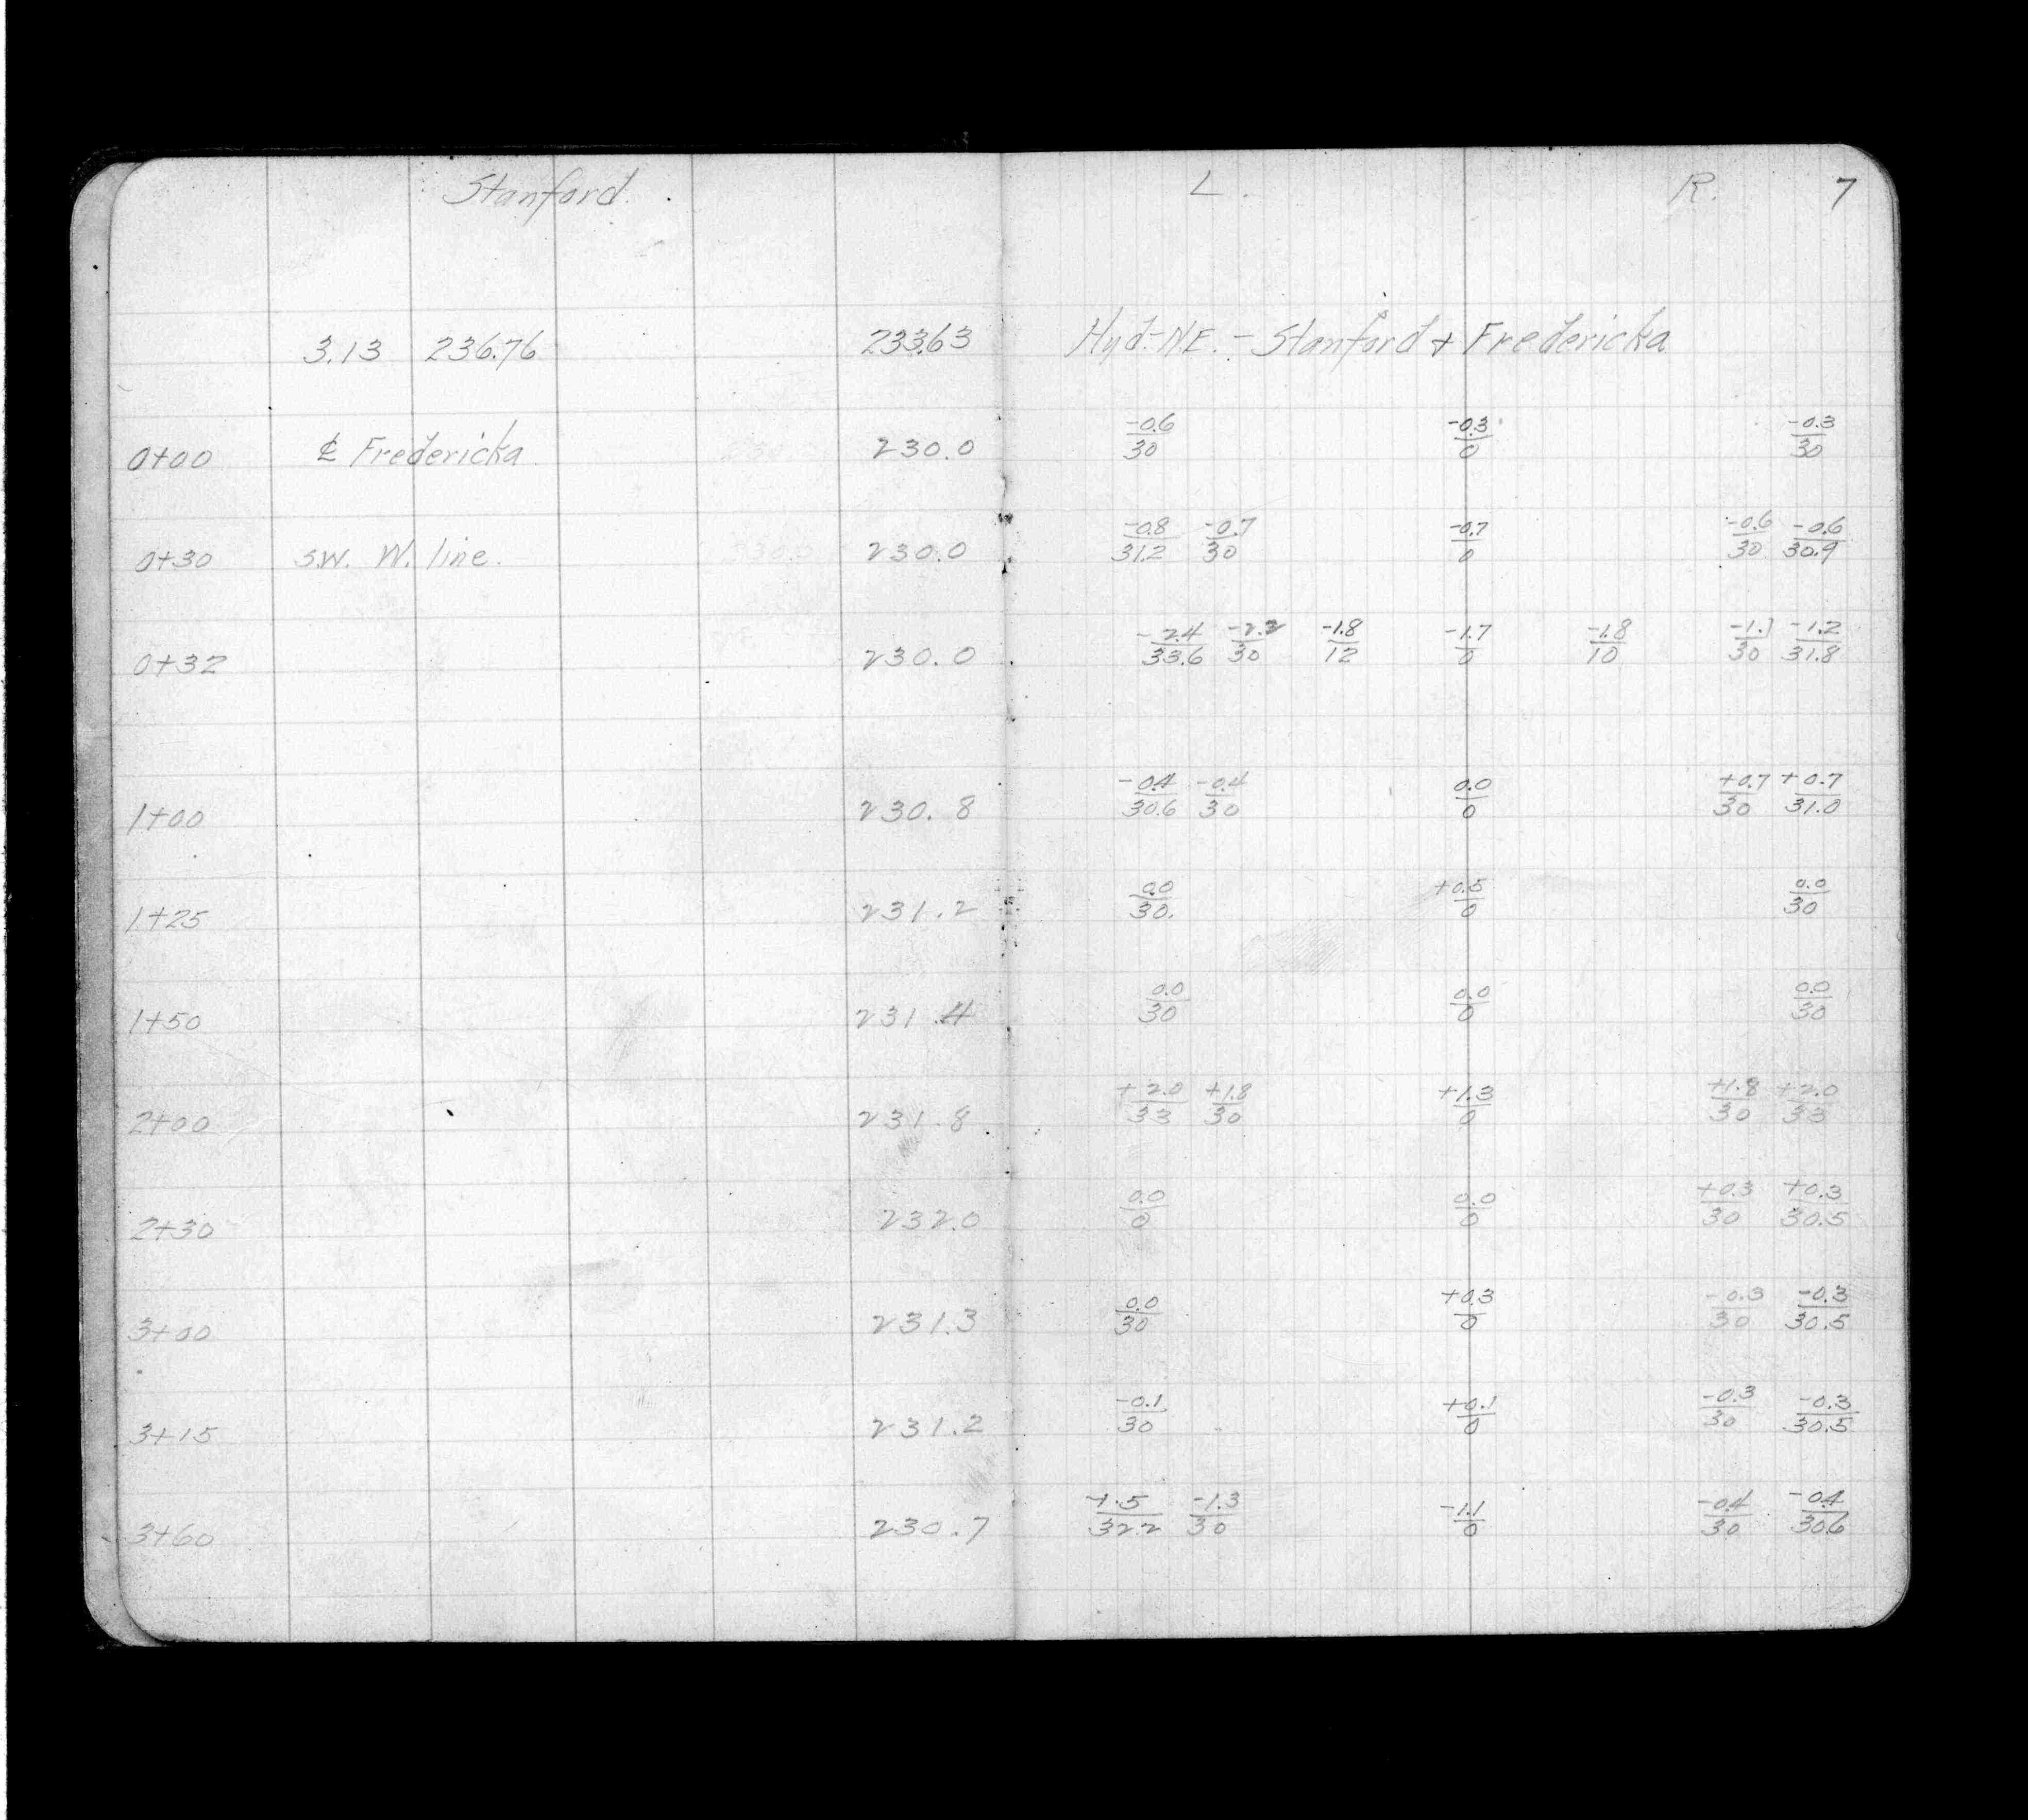 Stanford L. R. 7
3.13 236.76 233.63 Hyd-N.E. - Stanford & Fredericka
0+00 ℄ Fredericka 230.0 -0.6/30 -0.3/0 -0.3/30
0+30 s.w. W. line. 230.0 -0.8/31.2 -0.7/30 -0.7/0 -0.6/30 -0.6/30.9
0+32 230.0 -2.4/33.6 -2.2/30 -1.8/12 -1.7/0 -1.8/10 -1.1/30 -1.2/31.8
1+00 230.8 -0.4/30.6 -0.4/30 0.0/0 +0.7/30 +0.7/31.0
1+25 231.2 0.0/30. +0.5/0 0.0/30
1+50 231.4 0.0/30 0.0/0 0.0/30
2+00 231.8 +2.0/33 +1.8/30 +1.3/0 +1.8/30 +2.0/33
2+30 232.0 0.0/0 0.0/0 +0.3/30 +0.3/30.5
3+00 231.3 0.0/30 +0.3/0 -0.3/30 -0.3/30.5
3+15 231.2 -0.1/30 +0.1/0 -0.3/30 -0.3/30.5
3+60 230.7 -1.5/32.2 -1.3/30 -1.1/0 -0.4/30 -0.4/30.6